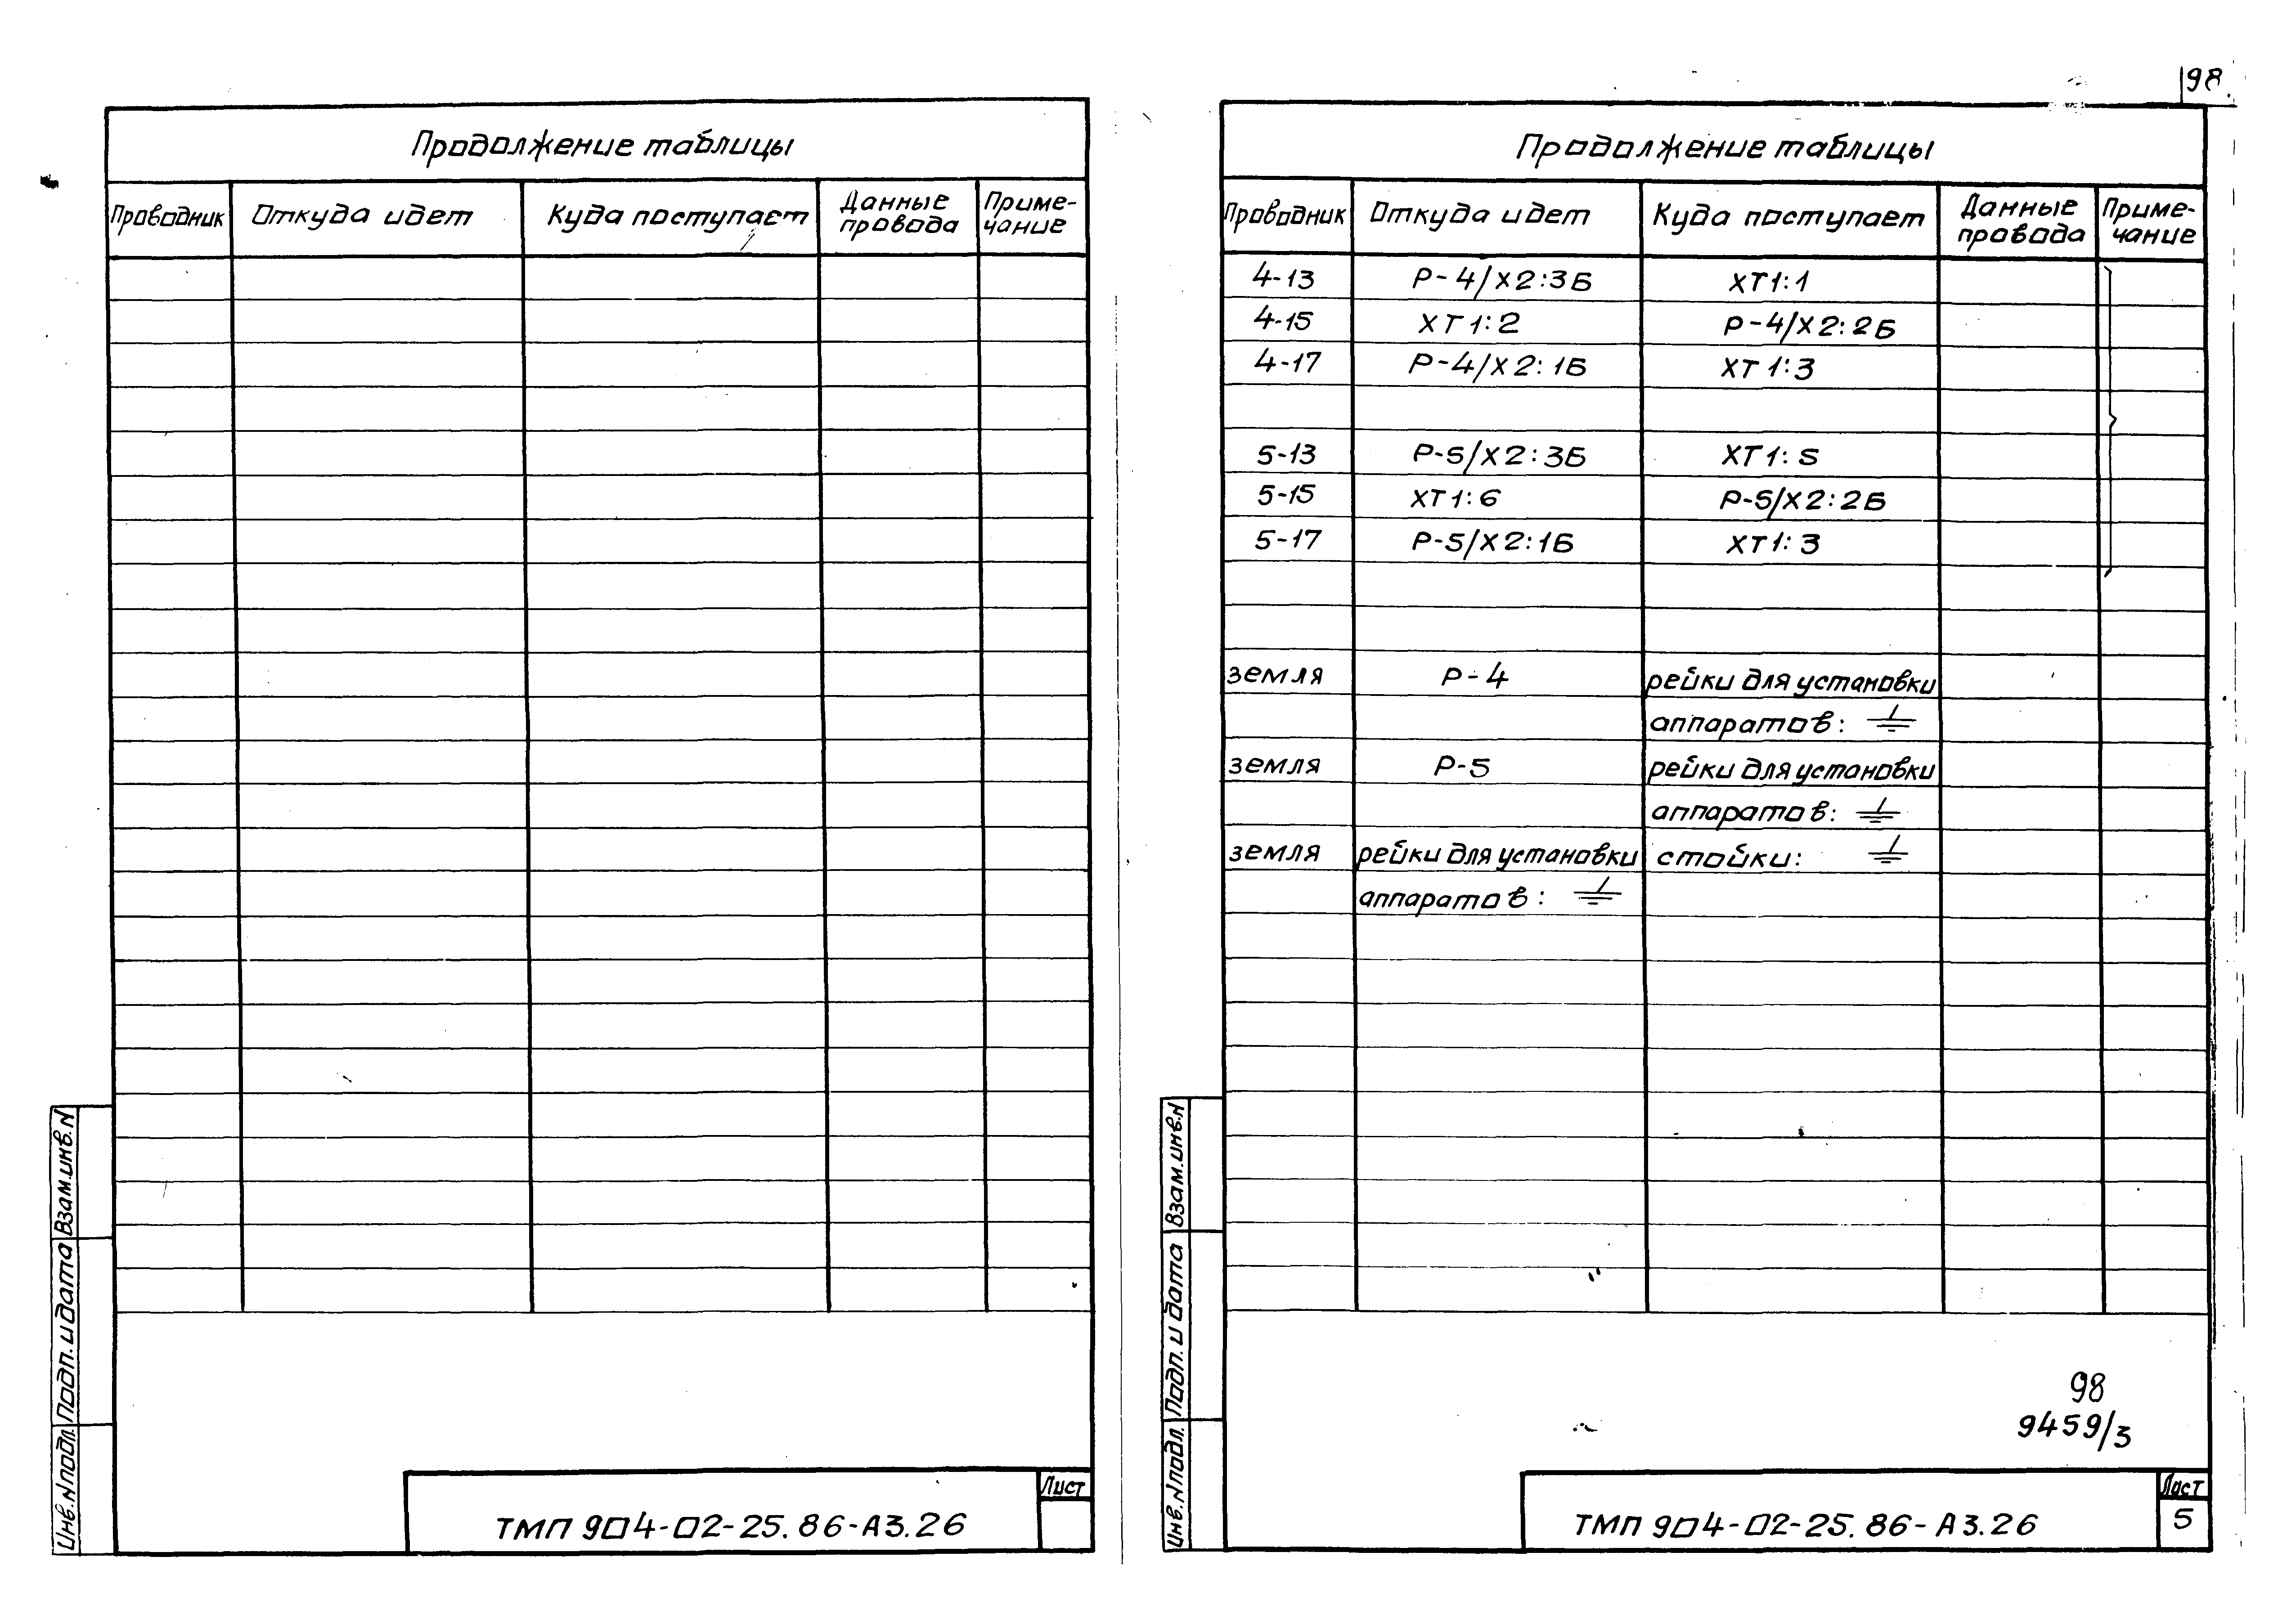 98
Продолжение таблицы
Проводник Откуда идет Куда поступает Данные провода Приме-чание
Взам.инв.N
Подп. и дата
Инв.N подл.
ТМП 904-02-25.86-А3.26
Лист
Продолжение таблицы
Проводник Откуда идет Куда поступает Данные провода Приме-чание
4-13 Р-4/Х2:3Б ХТ1:1
4-15 ХТ1:2 Р-4/Х2:2Б
4-17 Р-4/Х2:1Б ХТ1:3
5-13 Р-5/Х2:3Б ХТ1:5
5-15 ХТ1:6 Р-5/Х2:2Б
5-17 Р-5/Х2:1Б ХТ1:3
земля Р-4 рейки для установки
аппаратов: ⏚
земля Р-5 рейки для установки
аппаратов: ⏚
земля рейки для установки стойки: ⏚
аппаратов: ⏚
Взам.инв.N
Подп. и дата
Инв.N подл.
98
9459/3
ТМП 904-02-25.86-А3.26
Лист
5